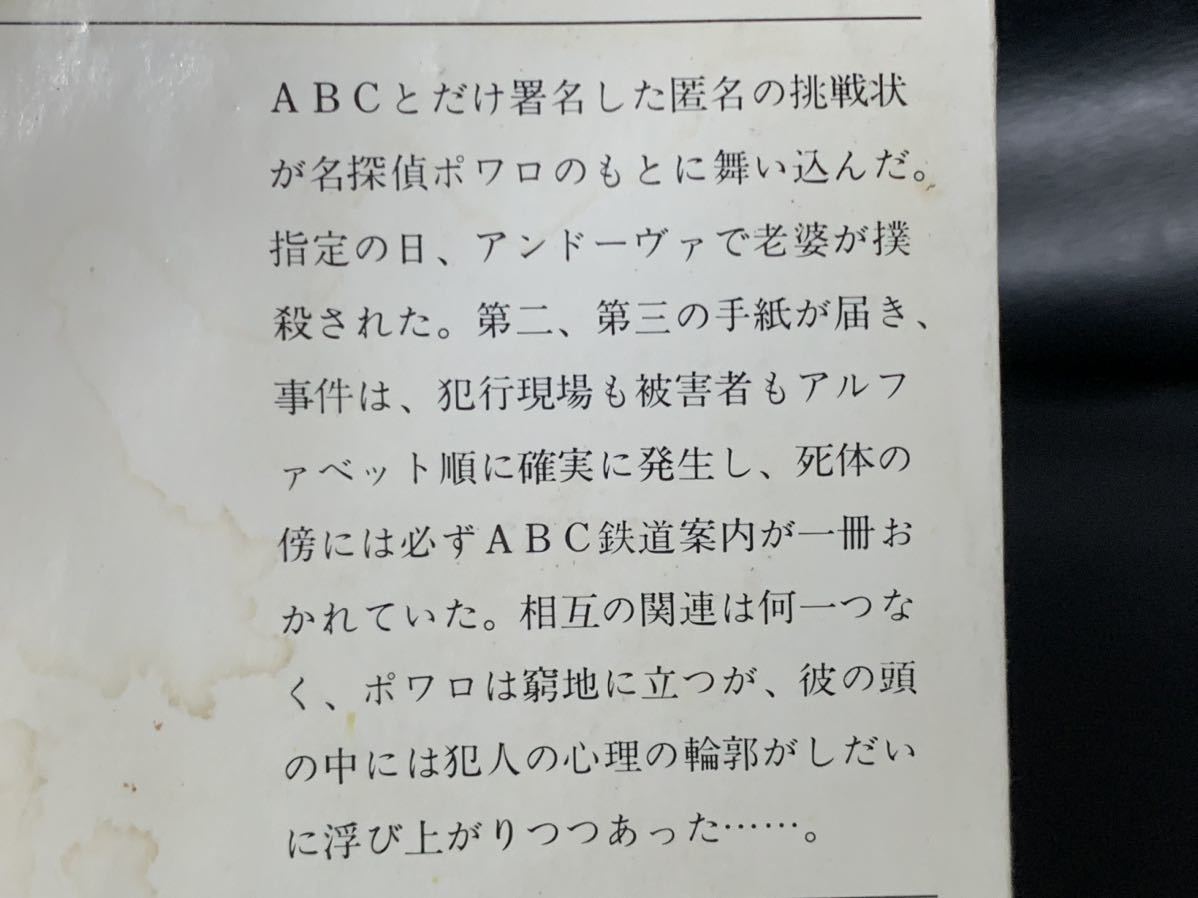 ABCとだけ署名した匿名の挑戦状
が名探偵ポワロのもとに舞い込んだ。
指定の日、アンドーヴァで老婆が撲
殺された。第二、第三の手紙が届き、
事件は、犯行現場も被害者もアルフ
ァベット順に確実に発生し、死体の
傍には必ずABC鉄道案内が一冊お
かれていた。相互の関連は何一つな
く、ポワロは窮地に立つが、彼の頭
の中には犯人の心理の輪郭がしだい
に浮び上がりつつあった……。